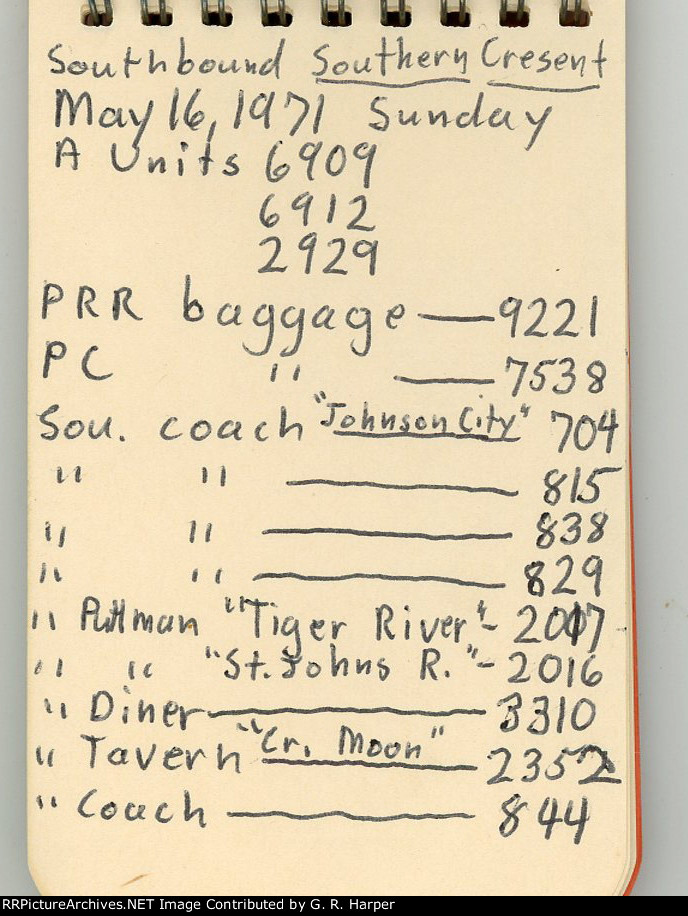 Southbound Southern Cresent
May 16, 1971 Sunday
A Units 6909
6912
2929
PRR baggage — 9221
PC " — 7538
Sou. coach "Johnson City" 704
" " — 815
" " — 838
" " — 829
" Pullman "Tiger River" - 2017
" " "St. Johns R." - 2016
" Diner — 3310
" Tavern "Cr. Moon" — 2352
" Coach — 844
RailPictureArchives.NET Image Contributed by G. R. Harper